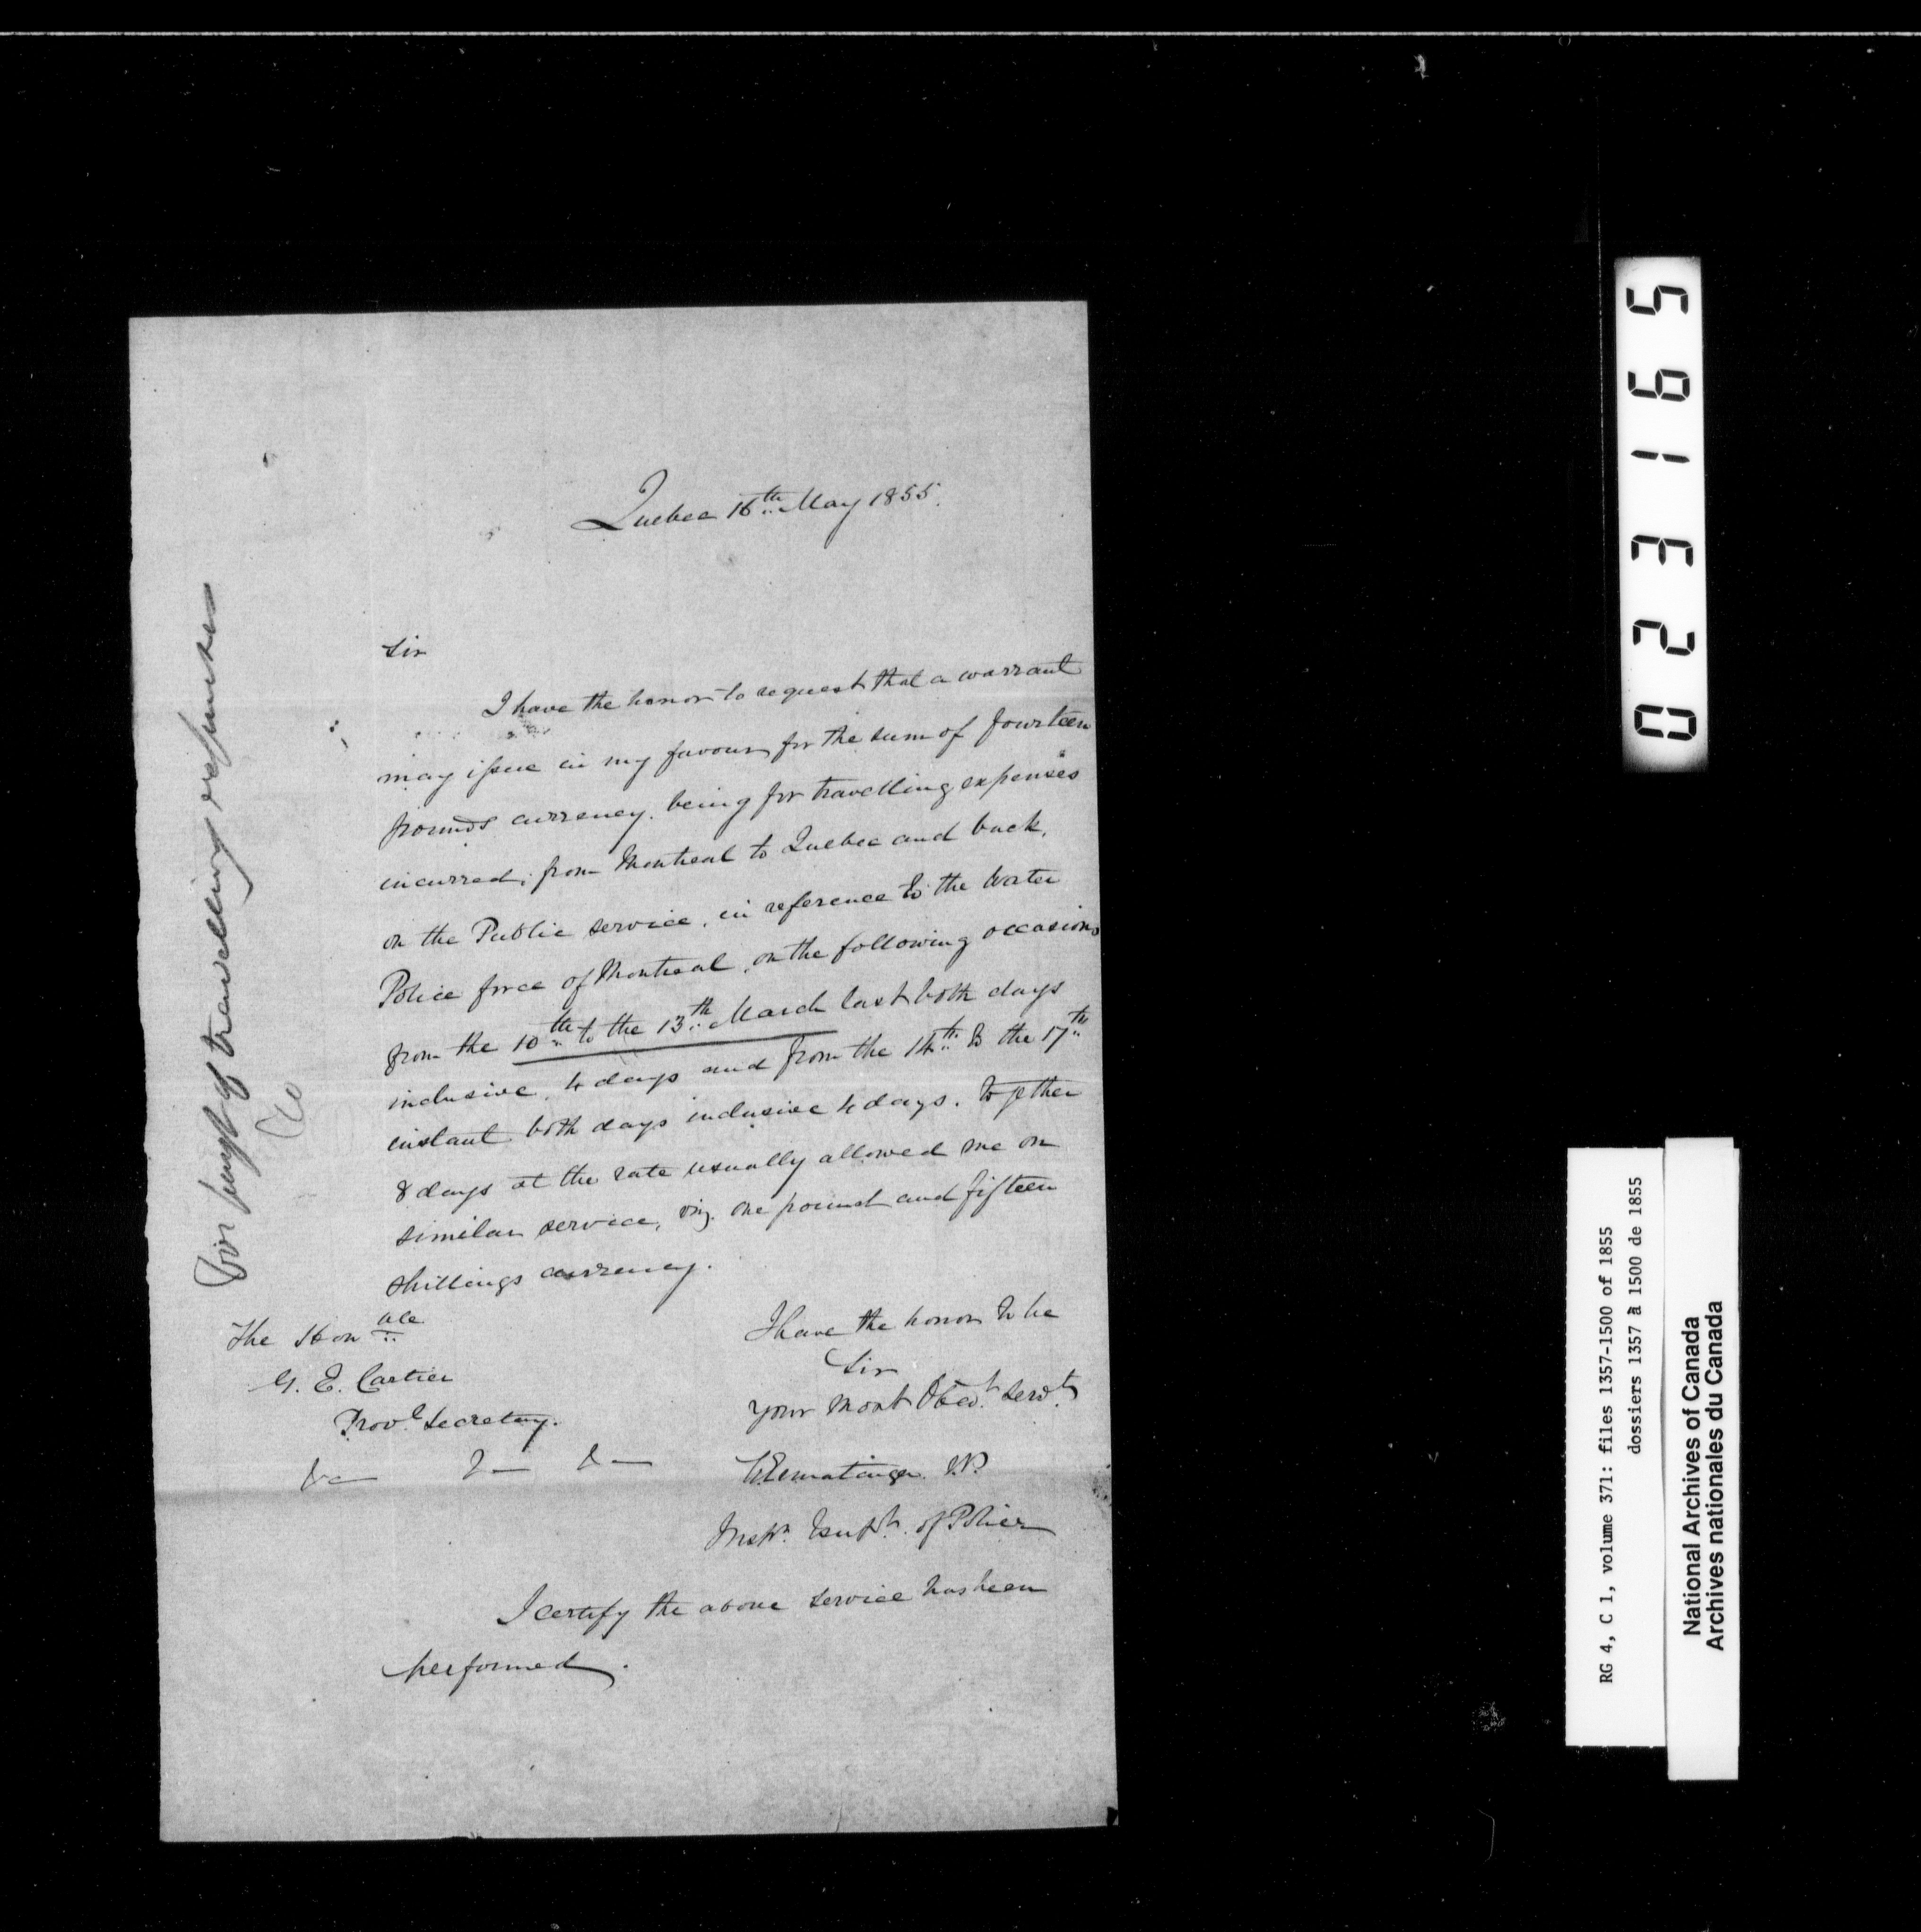 Quebec 16th May 1855.
Sir
I have the honor to request that a warrant
may issue in my favour for the sum of fourteen
pounds currency. being for travelling expenses
incurred, from Montreal to Quebec and back,
on the Public service, in reference to the Water
Police force of Montreal, on the following occasions
from the 10th to the 13th March last both days
inclusive, 4 days and from the 14th to the 17th
instant both days inclusive 4 days. together
8 days at the rate usually allowed me on
similar service, viz. one pound and fifteen
shillings currency.
I have the honor to be
Sir
Your most Obedt. Servt.
W Ermatinger J.P.
Inspr. & Supt. of Police
The Honble
G. E. Cartier
Provl. Secretary.
&c &c &c
I certify the above service has been
performed.
For paymt of travelling expenses
023165
RG 4, C 1, volume 371: files 1357-1500 of 1855
dossiers 1357 à 1500 de 1855
National Archives of Canada
Archives nationales du Canada